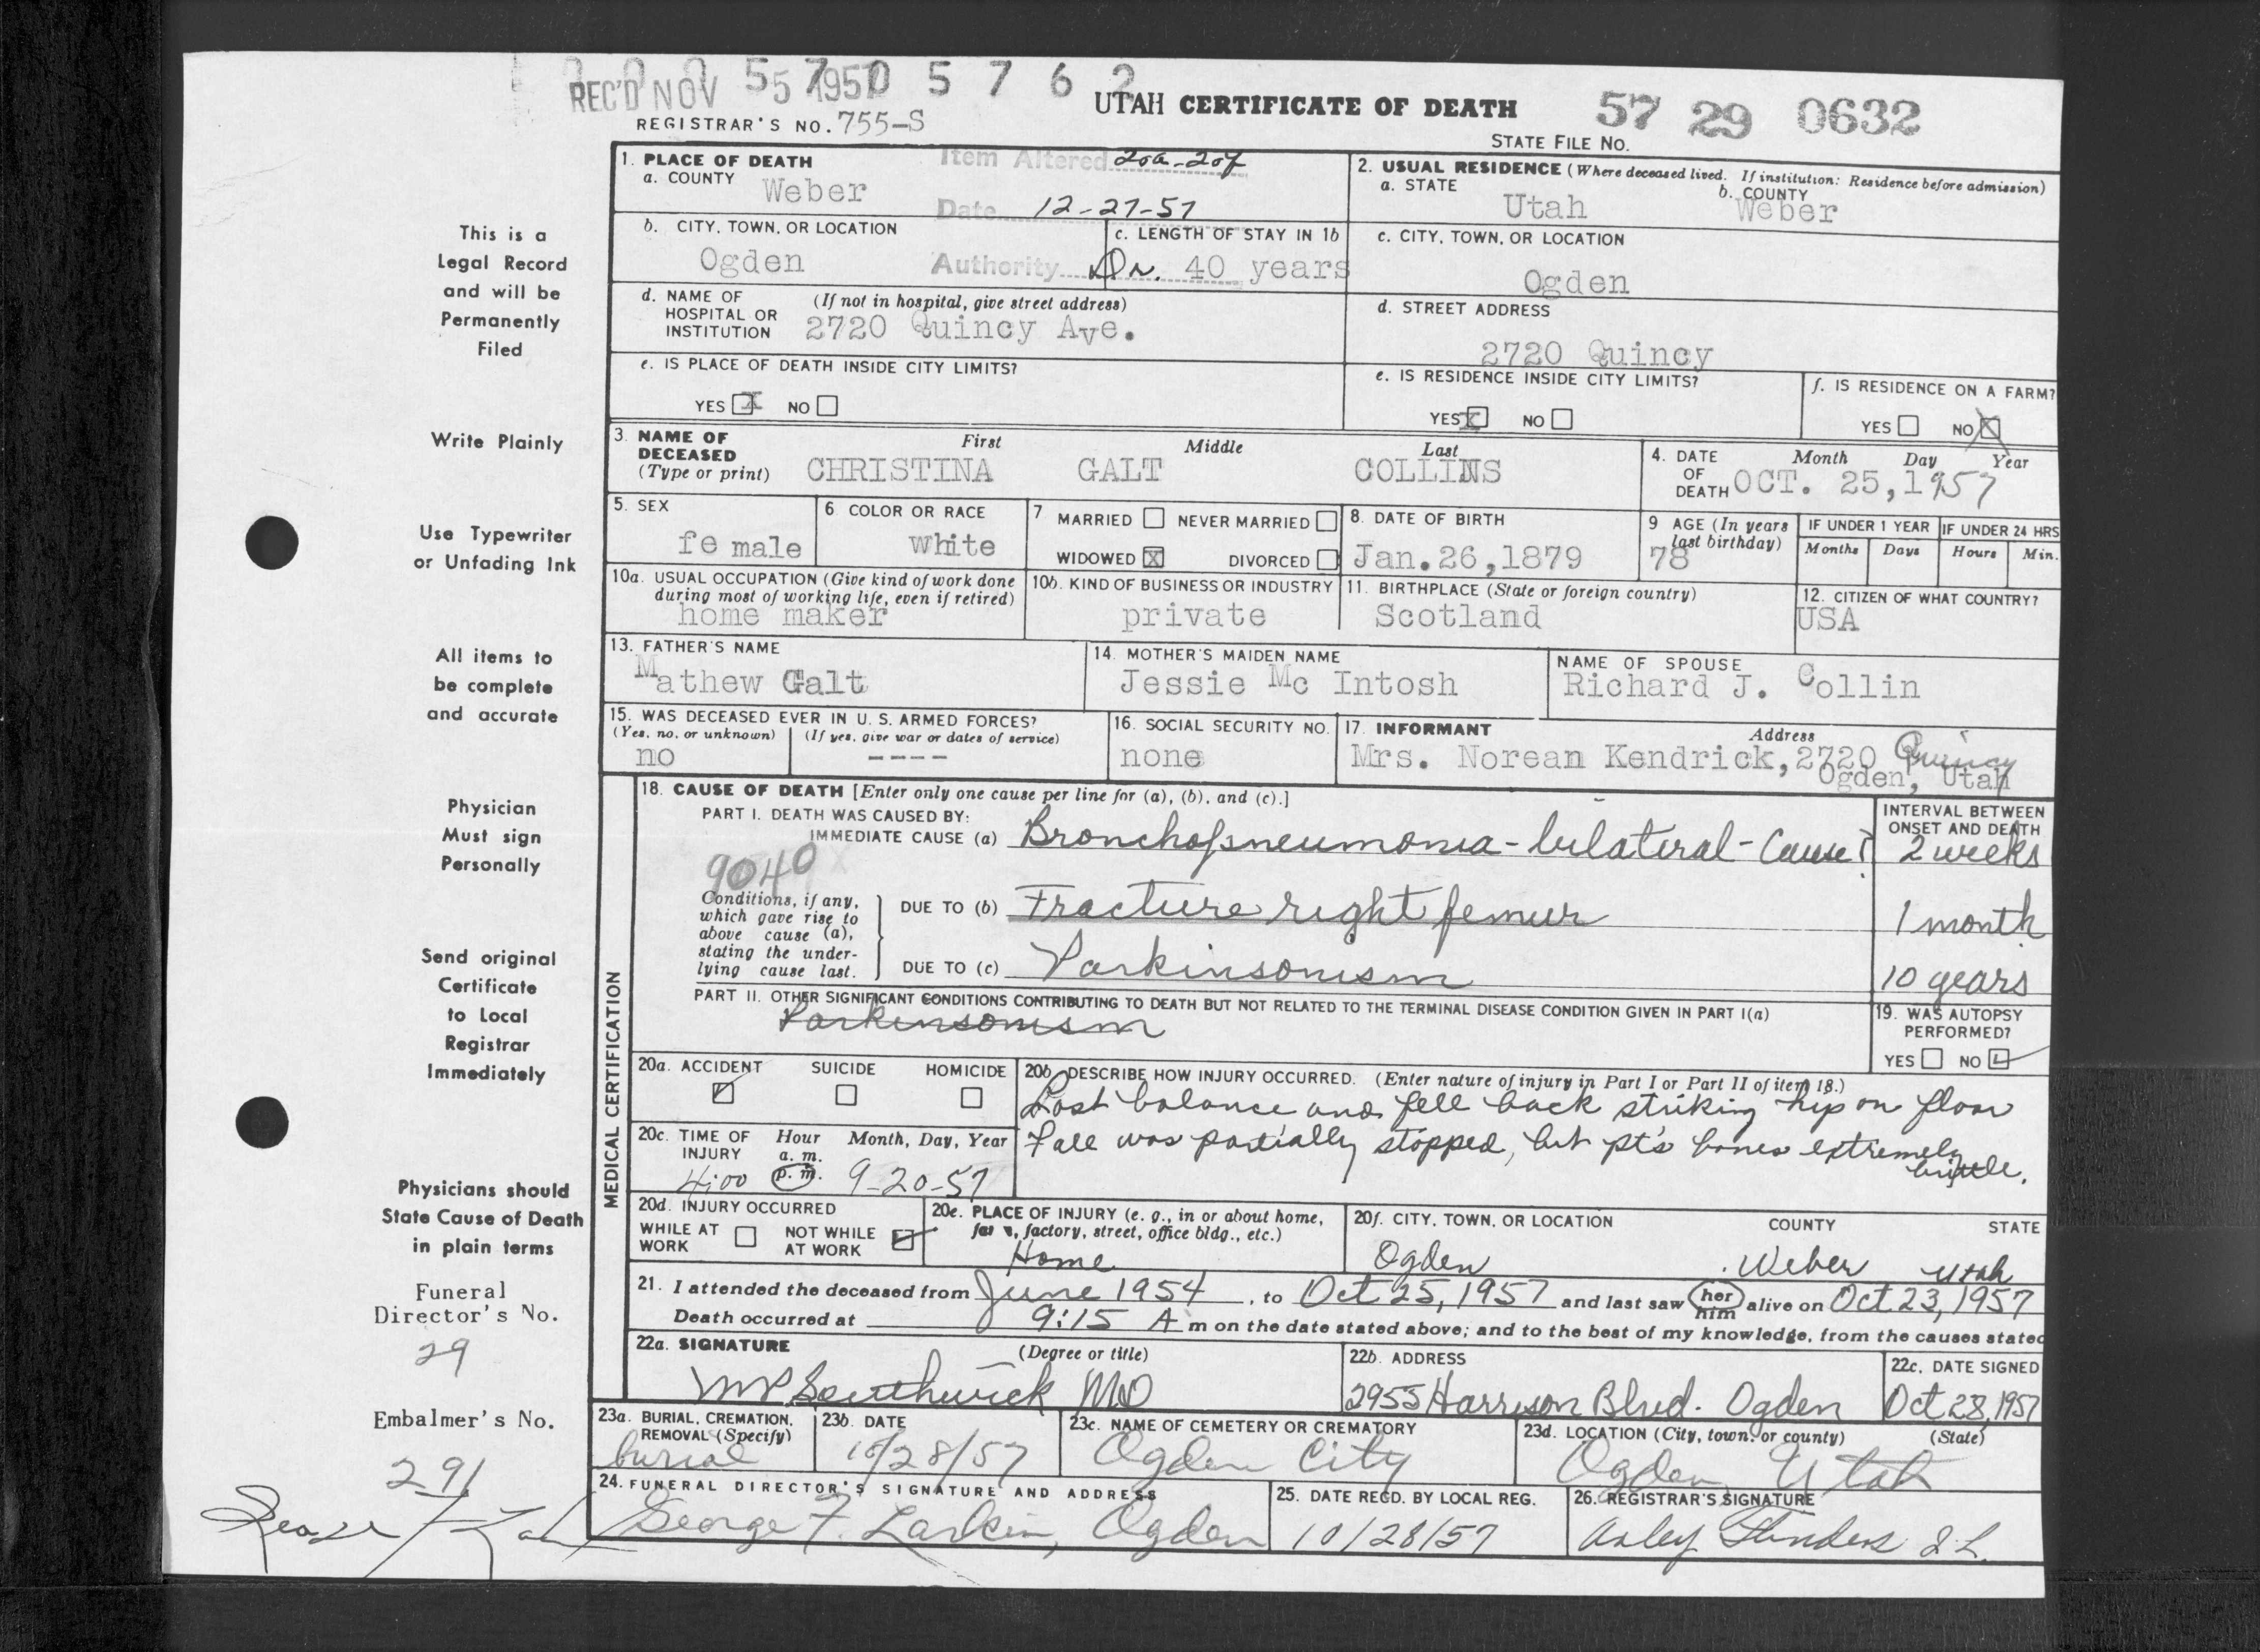 REC'D NOV 5 1957
5 7 0 5 7 6 2
UTAH CERTIFICATE OF DEATH
57 29 0632
REGISTRAR'S NO. 755-S
STATE FILE NO.
This is a
Legal Record
and will be
Permanently
Filed
Write Plainly
Use Typewriter
or Unfading Ink
All items to
be complete
and accurate
Physician
Must sign
Personally
Send original
Certificate
to Local
Registrar
Immediately
Physicians should
State Cause of Death
in plain terms
Funeral
Director's No.
29
Embalmer's No.
291
1. PLACE OF DEATH
a. COUNTY Weber
Item Altered 20a-20f
Date 12-27-57
Authority Dr.
2. USUAL RESIDENCE (Where deceased lived. If institution: Residence before admission)
a. STATE Utah
b. COUNTY Weber
b. CITY, TOWN, OR LOCATION Ogden
c. LENGTH OF STAY IN 1b 40 years
c. CITY, TOWN, OR LOCATION Ogden
d. NAME OF HOSPITAL OR INSTITUTION (If not in hospital, give street address) 2720 Quincy Ave.
d. STREET ADDRESS 2720 Quincy
e. IS PLACE OF DEATH INSIDE CITY LIMITS?
YES X NO
e. IS RESIDENCE INSIDE CITY LIMITS?
YES X NO
f. IS RESIDENCE ON A FARM?
YES NO X
3. NAME OF DECEASED (Type or print) First Middle Last
CHRISTINA GALT COLLINS
4. DATE OF DEATH Month Day Year
OCT. 25, 1957
5. SEX female
6 COLOR OR RACE white
7 MARRIED NEVER MARRIED
WIDOWED X DIVORCED
8. DATE OF BIRTH Jan. 26, 1879
9 AGE (In years last birthday) 78
IF UNDER 1 YEAR Months Days
IF UNDER 24 HRS Hours Min.
10a. USUAL OCCUPATION (Give kind of work done during most of working life, even if retired) home maker
10b. KIND OF BUSINESS OR INDUSTRY private
11. BIRTHPLACE (State or foreign country) Scotland
12. CITIZEN OF WHAT COUNTRY? USA
13. FATHER'S NAME Mathew Galt
14. MOTHER'S MAIDEN NAME Jessie Mc Intosh
NAME OF SPOUSE Richard J. Collin
15. WAS DECEASED EVER IN U. S. ARMED FORCES?
(Yes, no, or unknown) (If yes, give war or dates of service)
no ----
16. SOCIAL SECURITY NO. none
17. INFORMANT Address
Mrs. Norean Kendrick, 2720 Quincy
Ogden, Utah
MEDICAL CERTIFICATION
18. CAUSE OF DEATH [Enter only one cause per line for (a), (b), and (c).]
PART I. DEATH WAS CAUSED BY:
IMMEDIATE CAUSE (a) Bronchopneumonia - bilateral - Cause?
INTERVAL BETWEEN ONSET AND DEATH
2 weeks
9040
Conditions, if any, which gave rise to above cause (a), stating the underlying cause last.
DUE TO (b) Fracture right femur 1 month
DUE TO (c) Parkinsonism 10 years
PART II. OTHER SIGNIFICANT CONDITIONS CONTRIBUTING TO DEATH BUT NOT RELATED TO THE TERMINAL DISEASE CONDITION GIVEN IN PART I(a)
Parkinsonism
19. WAS AUTOPSY PERFORMED?
YES NO
20a. ACCIDENT SUICIDE HOMICIDE
20b. DESCRIBE HOW INJURY OCCURRED. (Enter nature of injury in Part I or Part II of item 18.)
Lost balance and fell back striking hip on floor
Fall was partially stopped, but pt's bones extremely
brittle.
20c. TIME OF INJURY Hour a. m. p. m. Month, Day, Year
4:00 9-20-57
20d. INJURY OCCURRED
WHILE AT WORK NOT WHILE AT WORK
20e. PLACE OF INJURY (e. g., in or about home, farm, factory, street, office bldg., etc.)
Home
20f. CITY, TOWN, OR LOCATION COUNTY STATE
Ogden Weber Utah
21. I attended the deceased from June 1954, to Oct 25, 1957 and last saw her him alive on Oct 23, 1957
Death occurred at 9:15 A m on the date stated above; and to the best of my knowledge, from the causes stated
22a. SIGNATURE (Degree or title)
Southwick MD
22b. ADDRESS
2955 Harrison Blvd. Ogden
22c. DATE SIGNED
Oct 28, 1957
23a. BURIAL, CREMATION, REMOVAL (Specify)
burial
23b. DATE
10/28/57
23c. NAME OF CEMETERY OR CREMATORY
Ogden City
23d. LOCATION (City, town, or county) (State)
Ogden Utah
24. FUNERAL DIRECTOR'S SIGNATURE AND ADDRESS
George F. Larkin, Ogden
25. DATE RECD. BY LOCAL REG.
10/28/57
26. REGISTRAR'S SIGNATURE